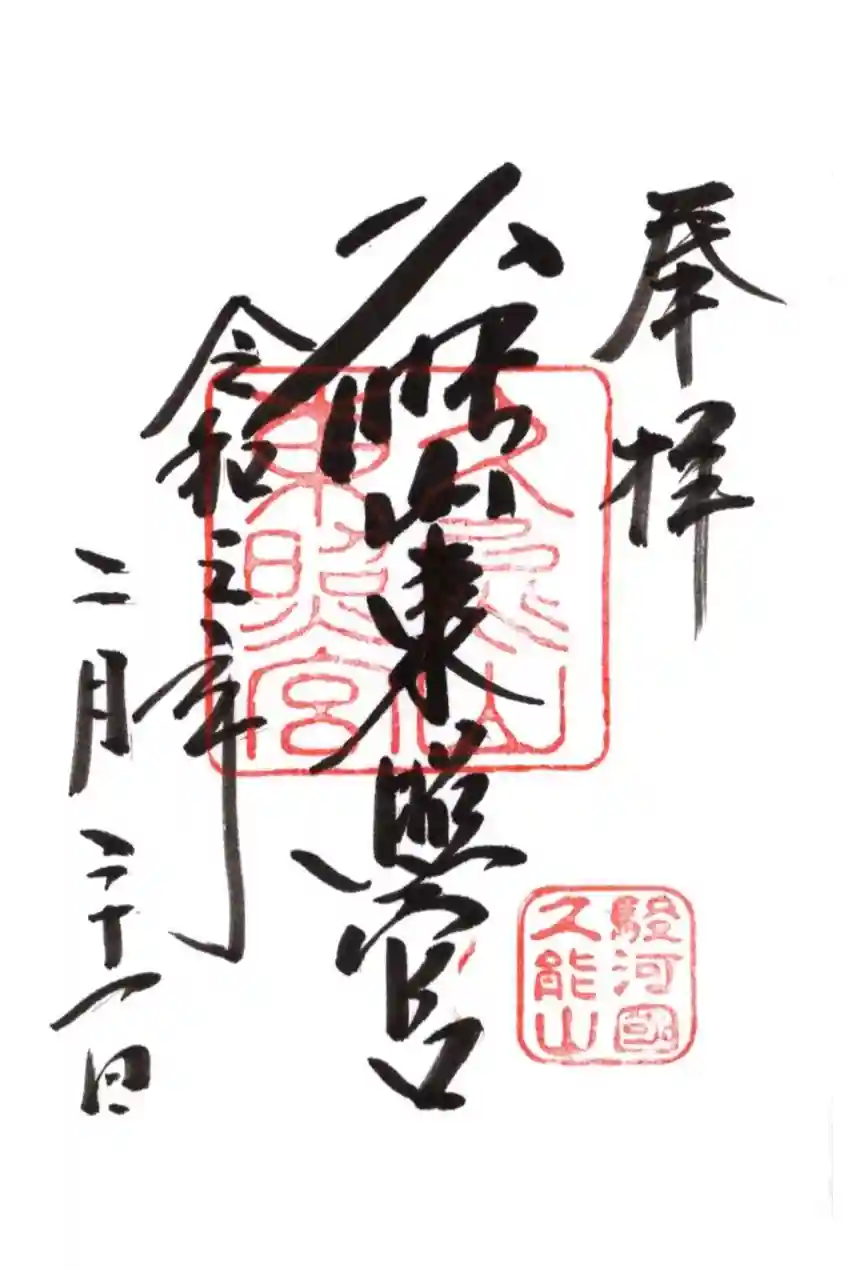 奉拝
久能山東照宮
令和三年
二月二十一日
久能山
東照宮
駿河國
久能山